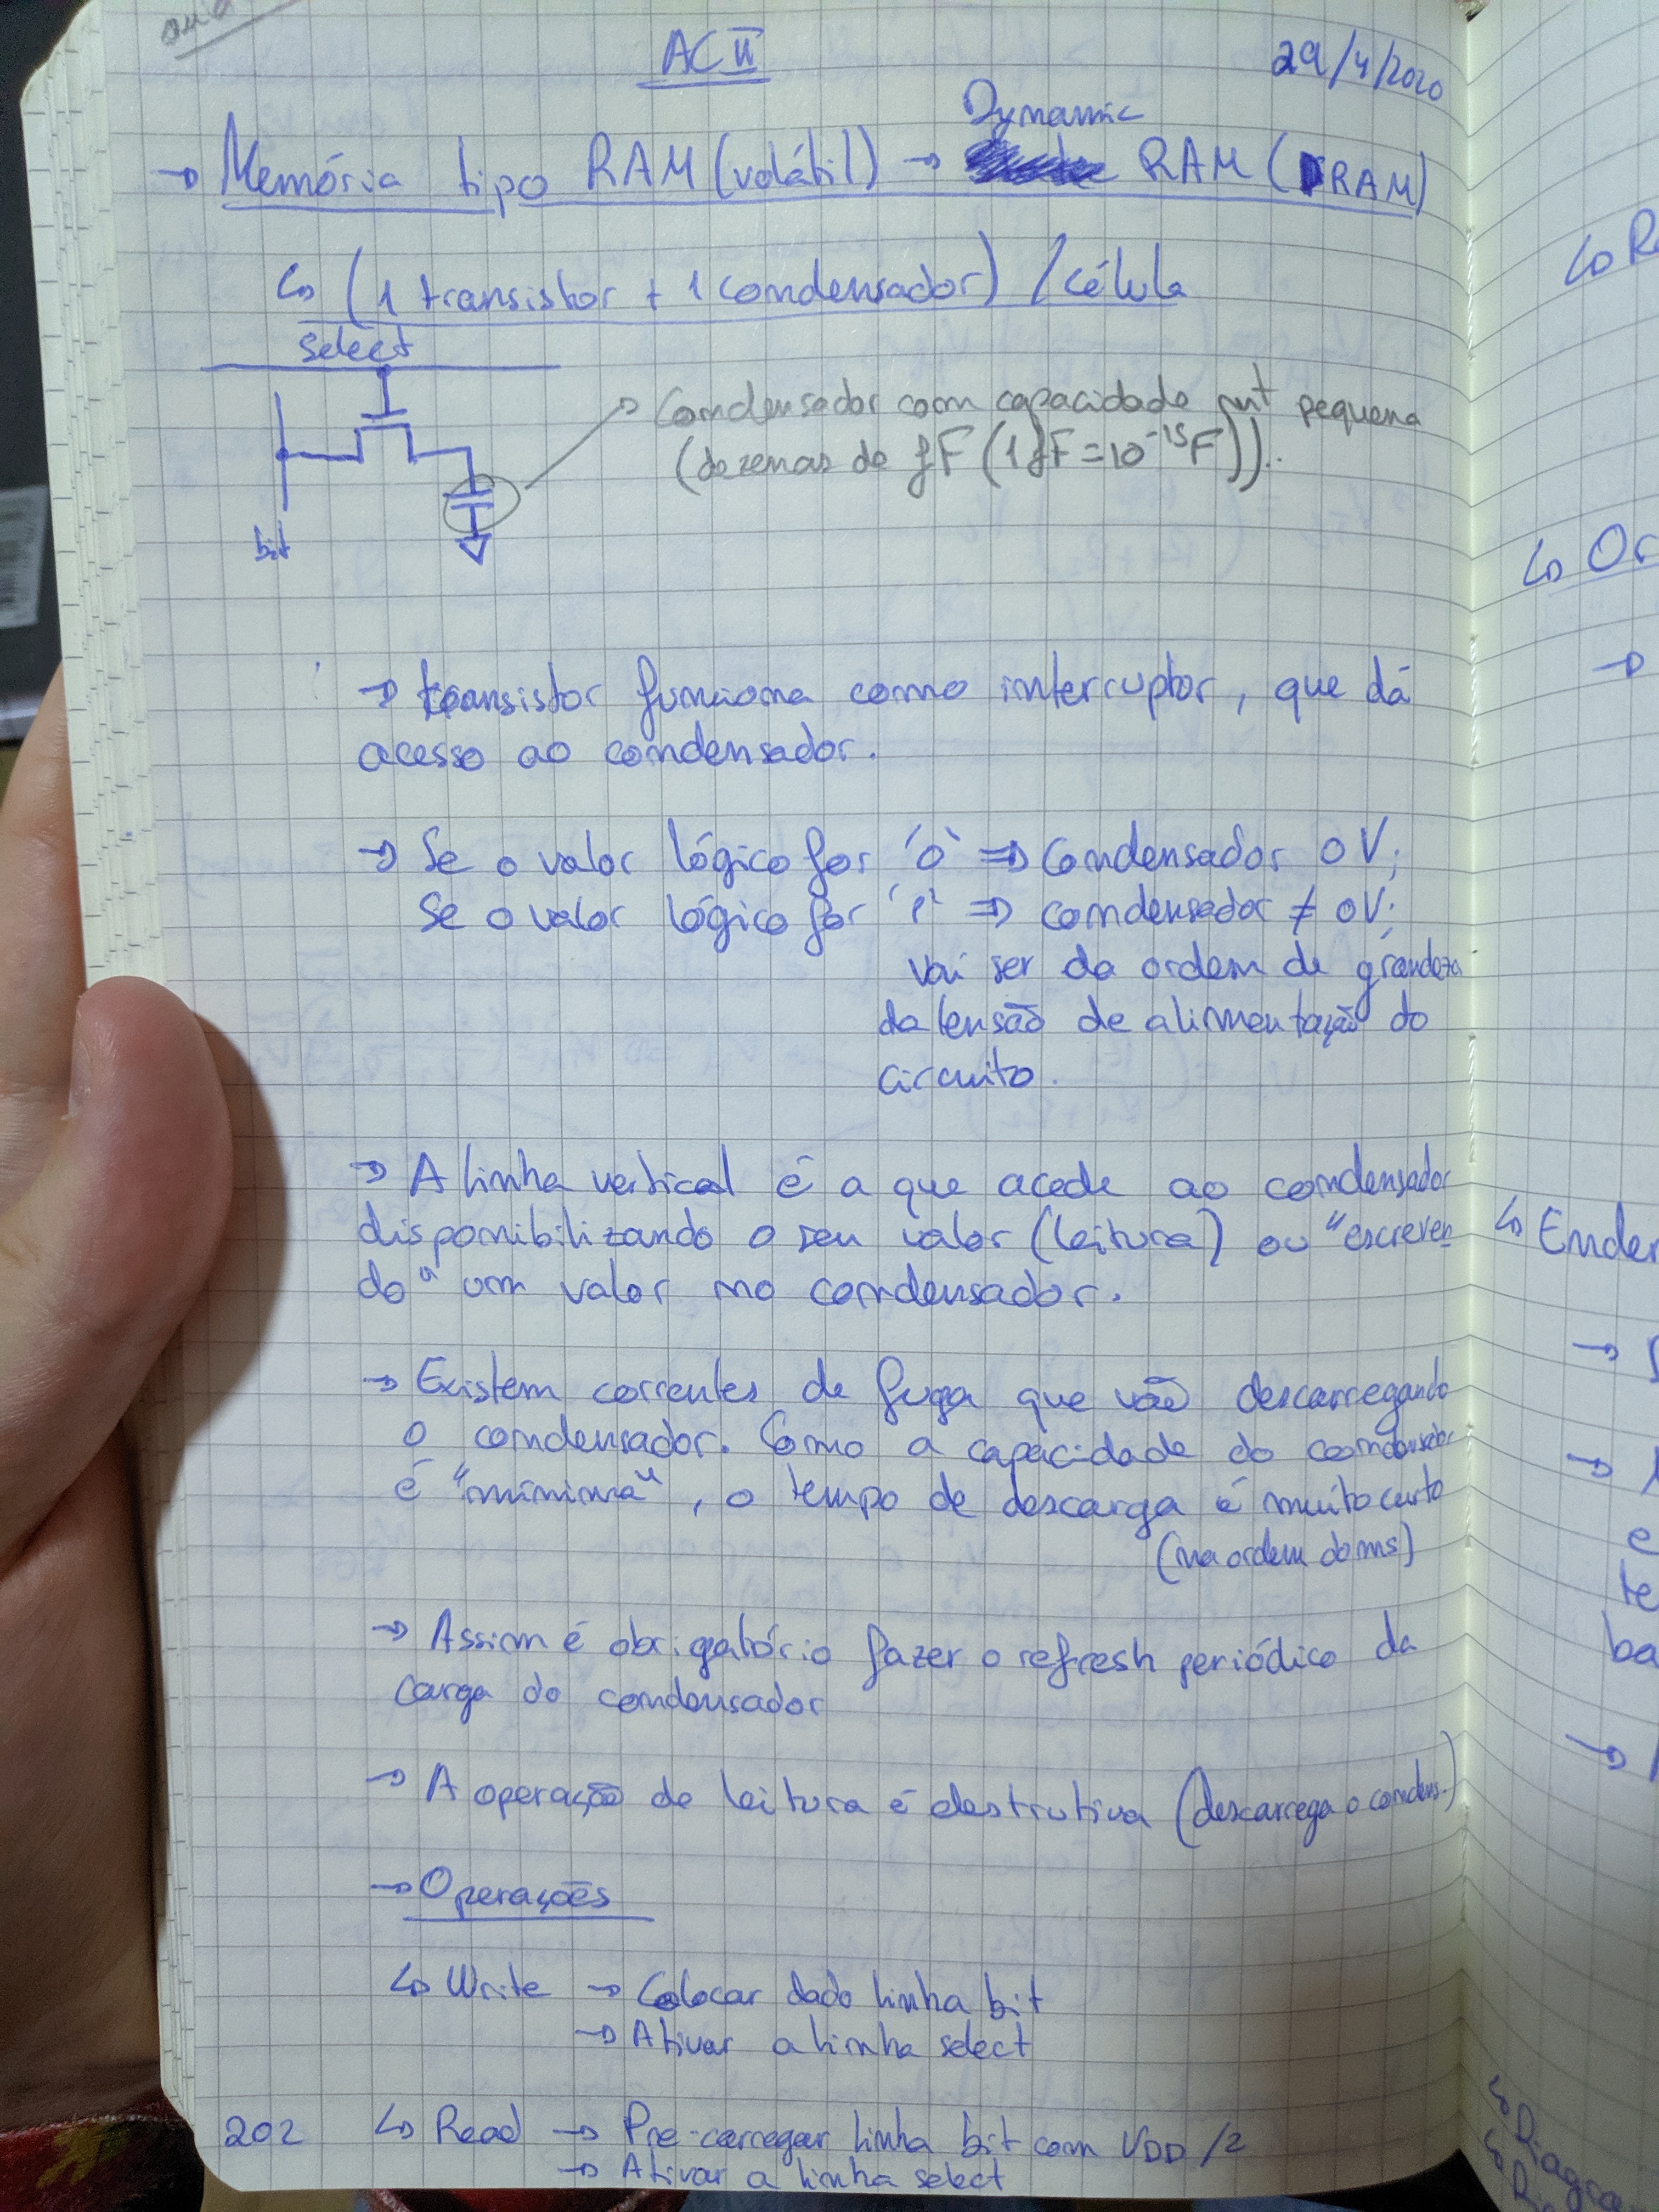 AC II
29/4/2020
Dynamic
→ Memória tipo RAM (volátil) → RAM (DRAM)
↳ (1 transistor + 1 condensador) / célula
select
→ Condensador com capacidade mt pequena
(dezenas de fF (1 fF = 10⁻¹⁵ F)).
bit
→ transistor funciona como interruptor, que dá
acesso ao condensador.
→ Se o valor lógico for '0' ⇒ Condensador 0V;
Se o valor lógico for '1' ⇒ condensador ≠ 0V;
vai ser da ordem de grandeza
da tensão de alimentação do
circuito.
→ A linha vertical é a que acede ao condensador
disponibilizando o seu valor (leitura) ou "escreven
do" um valor no condensador.
→ Existem correntes de fuga que vão descarregando
o condensador. Como a capacidade do condensador
é "mínima", o tempo de descarga é muito curto
(na ordem do ms)
→ Assim é obrigatório fazer o refresh periódico da
carga do condensador
→ A operação de leitura é destrutiva (descarrega o condens.)
→ Operações
↳ Write → Colocar dado linha bit
→ Ativar a linha select
202 ↳ Read → Pre-carregar linha bit com VDD/2
→ Ativar a linha select
↳ R
↳ Or
→
↳ Ender
→
→
e
te
ba
→
↳ Diagra
↳ R